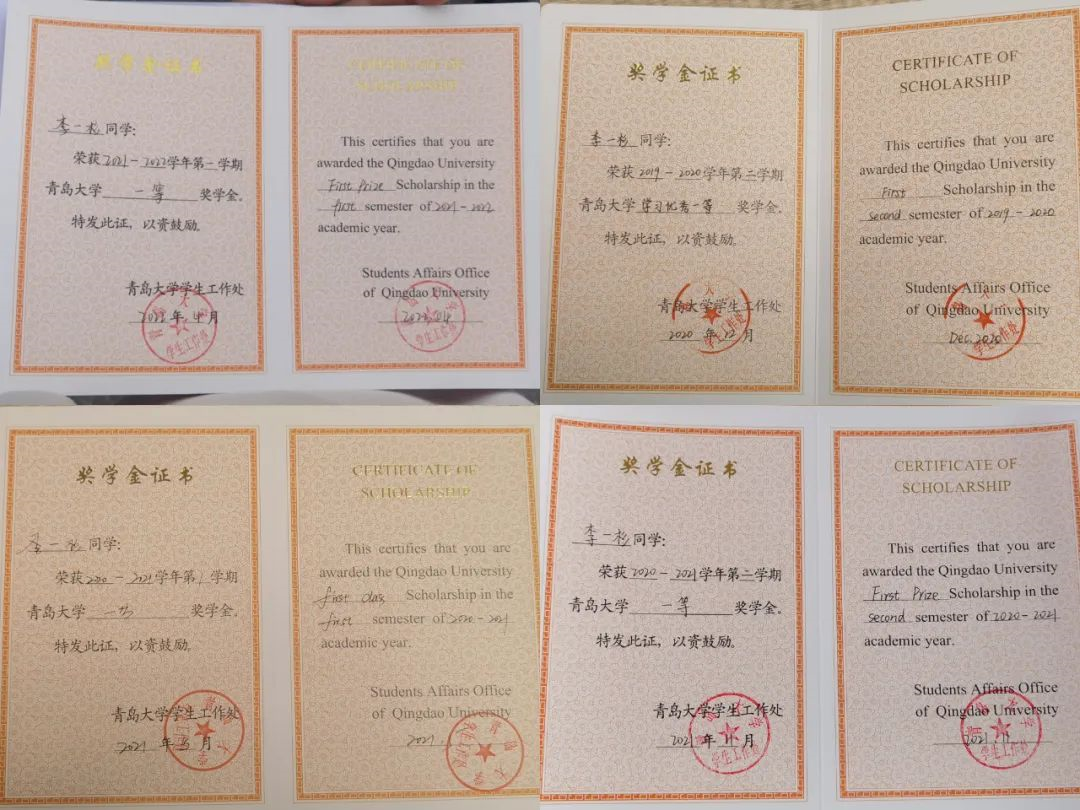 奖学金证书
李一彬同学:
荣获2021-2022学年第一学期
青岛大学一等奖学金。
特发此证，以资鼓励。
青岛大学学生工作处
2022年4月
CERTIFICATE OF
SCHOLARSHIP
This certifies that you are
awarded the Qingdao University
First Prize Scholarship in the
first semester of 2021-2022
academic year.
Students Affairs Office
of Qingdao University
2022.04
学生工作处
奖学金证书
李一彬同学:
荣获2019-2020学年第二学期
青岛大学学习优秀一等奖学金。
特发此证，以资鼓励。
青岛大学学生工作处
2020年12月
CERTIFICATE OF
SCHOLARSHIP
This certifies that you are
awarded the Qingdao University
First Scholarship in the
second semester of 2019-2020
academic year.
Students Affairs Office
of Qingdao University
Dec. 2020
奖学金证书
李一彬同学:
荣获2020-2021学年第1学期
青岛大学一等奖学金。
特发此证，以资鼓励。
青岛大学学生工作处
2021年5月
CERTIFICATE OF
SCHOLARSHIP
This certifies that you are
awarded the Qingdao University
first class Scholarship in the
first semester of 2020-2021
academic year.
Students Affairs Office
of Qingdao University
2021.
奖学金证书
李一彬同学:
荣获2020-2021学年第二学期
青岛大学一等奖学金。
特发此证，以资鼓励。
青岛大学学生工作处
2021年11月
学生工作处
CERTIFICATE OF
SCHOLARSHIP
This certifies that you are
awarded the Qingdao University
First Prize Scholarship in the
second semester of 2020-2021
academic year.
Students Affairs Office
of Qingdao University
2021.11
学生工作处